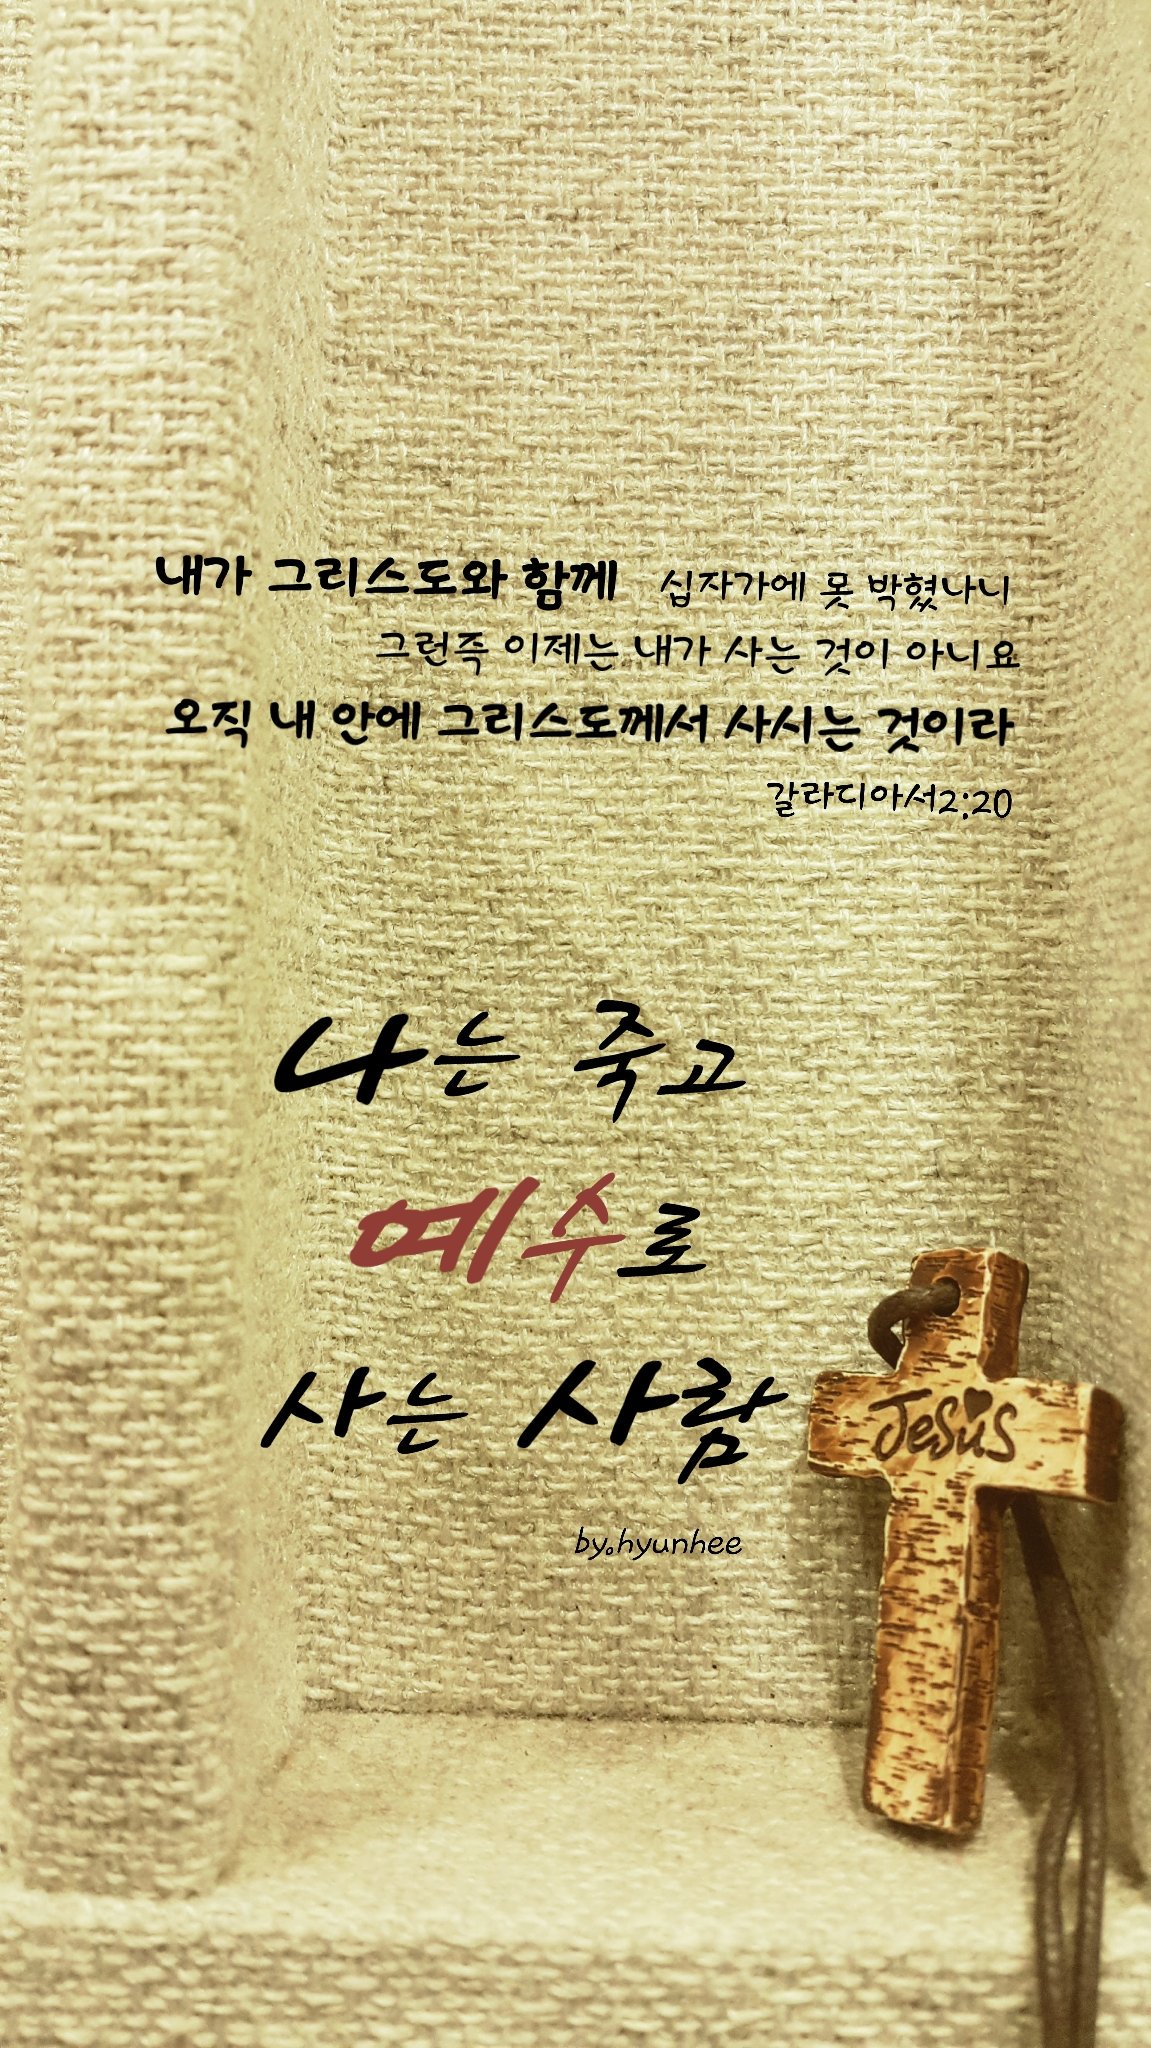 내가 그리스도와 함께 십자가에 못 박혔나니
그런즉 이제는 내가 사는 것이 아니요
오직 내 안에 그리스도께서 사시는 것이라
갈라디아서2:20
나는 죽고
예수로
사는 사람
Jesus
by.hyunhee